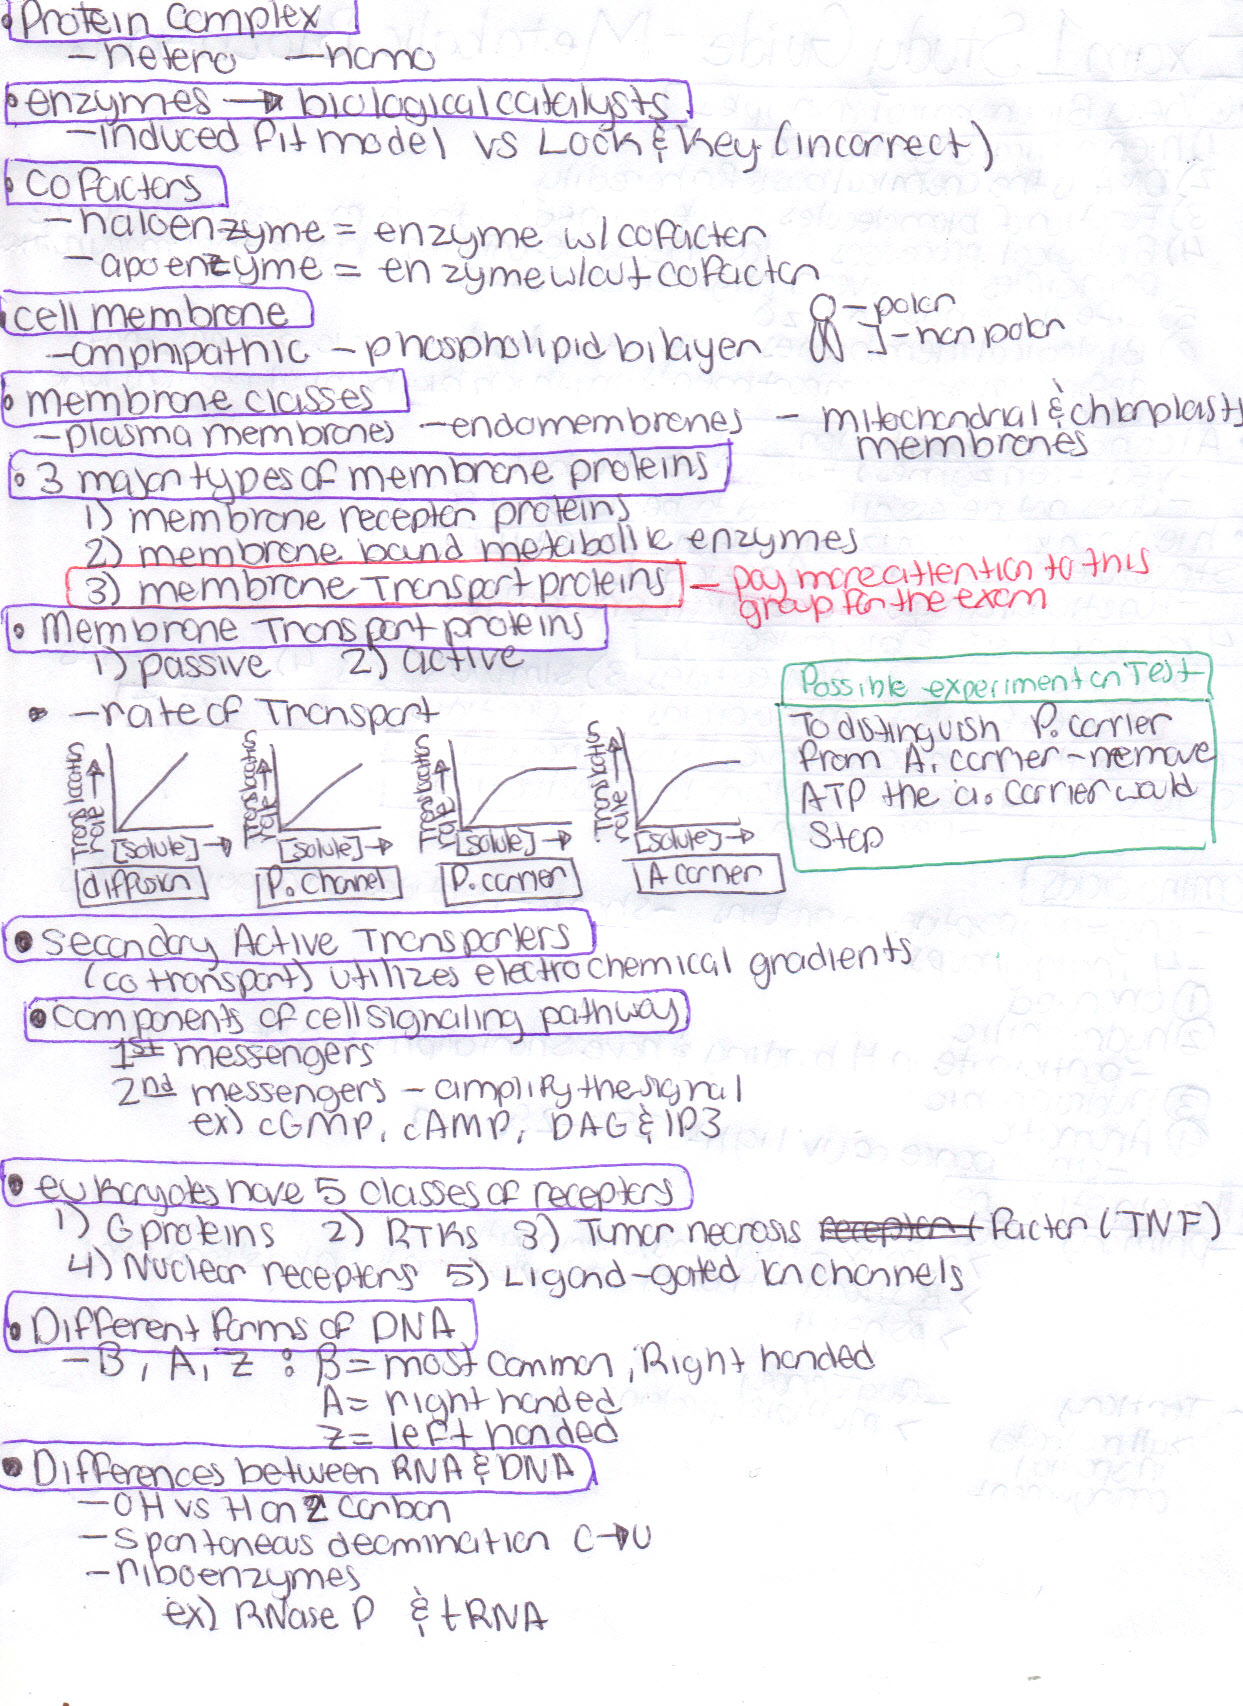 • Protein Complex
– hetero – homo
• enzymes → biological catalysts
– induced fit model vs Lock & Key (incorrect)
• cofactors
– haloenzyme = enzyme w/ cofactor
– apoenzyme = enzyme w/out cofactor
• cell membrane
– amphipathic – phospholipid bilayer
– polar
] – non polar
• membrane classes
– plasma membranes – endomembranes – mitochondrial & chloroplasts
membranes
• 3 major types of membrane proteins
1) membrane receptor proteins
2) membrane bound metabolic enzymes
3) membrane Transport proteins – pay more attention to this
group for the exam
• Membrane Transport proteins
1) passive 2) active
• – rate of Transport
Translocation rate → [solute] →
diffusion
Translocation rate → [solute] →
P. Channel
Translocation rate → [solute] →
P. carrier
Translocation rate → [solute] →
A carrier
Possible experiment on Test
To distinguish P. carrier
from A. carrier – remove
ATP the a. carrier would
Stop
• Secondary Active Transporters
(cotransport) utilizes electrochemical gradients
• components of cell signaling pathway
1st messengers
2nd messengers – amplify the signal
ex) cGMP, cAMP, DAG & IP3
• eukaryotes have 5 classes of receptors
1) G proteins 2) RTKs 3) Tumor necrosis receptor factor (TNF)
4) Nuclear receptors 5) Ligand-gated ion channels
• Different forms of DNA
– B, A, Z : B = most common, Right handed
A = right handed
Z = left handed
• Differences between RNA & DNA
– OH vs H on 2 carbon
– Spontaneous deamination C → U
– riboenzymes
ex) RNase P & tRNA